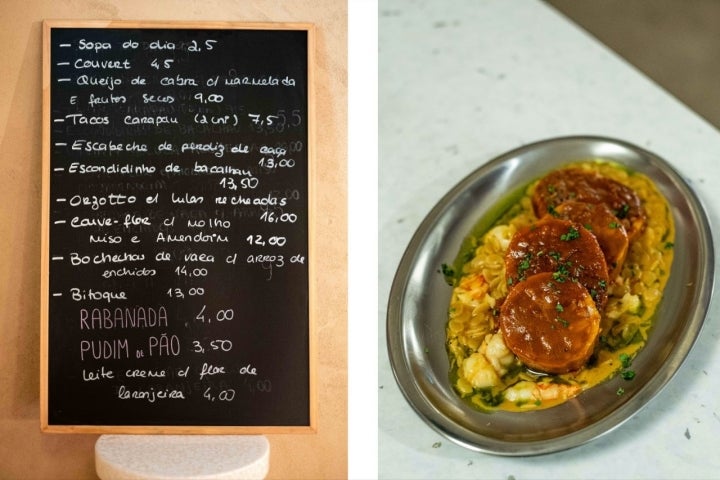 - Sopa do dia 2,5
- Couvert 4,5
- Queijo de cabra c/ marmelada
e frutos secos 9,00
- Tacos carapau (2 un) 7,5
- Escabeche de perdiz de caça
13,00
- Escondidinho de bacalhau
13,50
- Orzotto c/ lulas recheadas
16,00
- Couve-flor c/ molho
miso e Amendoim 12,00
- Bochechas de vaca c/ arroz de
enchidos 14,00
- Bitoque 13,00
RABANADA 4,00
PUDIM DE PÃO 3,50
Leite creme c/ flor de
laranjeira 4,00